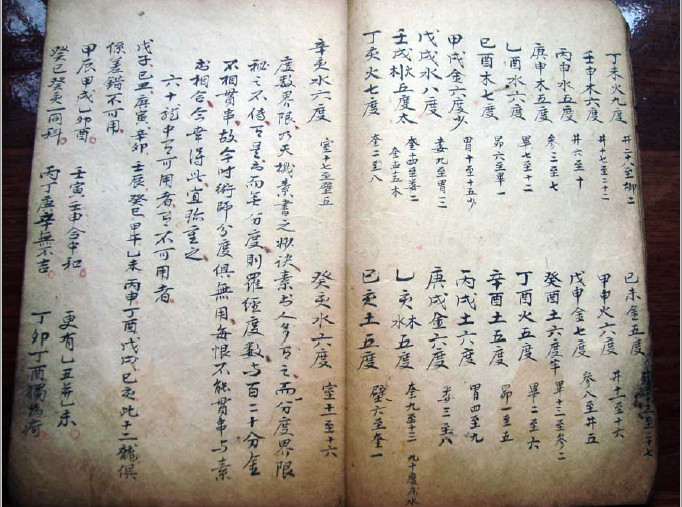 丁未火九度 井二十八至柳二 己未金五度
壬申木六度 井十七至二十二 甲申火六度 井十一至十六
丙申水五度 井六至十 戊申金七度 參八至井五
庚申木五度 參二至七 癸酉土六度 畢十三至參二
乙酉水六度 畢七至十二 丁酉火五度 畢二至六
己酉木七度 昴六至畢一 辛酉土五度 昴一至五
甲戌金六度少 胃十至十五少 丙戌土六度 胃四至九
戊戌水八度 婁九至胃二 庚戌金六度 婁三至八
壬戌 五度太 奎 至婁二 乙亥 五度 奎九至十三
丁亥火七度 奎二至八 己亥土五度 壁六至奎一
辛亥水六度 室十七至壁五 癸亥水六度 室十一至十六
度數界限乃天機素書之妙訣素書人多有之而分度界限
秘之不傳 分度則羅經度數与百二十分金
不相貫串故今時術師分度俱無用每恨不能貫串与素
書相合今幸得此宜珍重之
六十龍中有可用者有不可用者
戊子己丑庚寅辛卯壬辰癸巳甲午乙未丙申丁酉戊戌己亥此十二龍俱
係差錯不可用
甲辰甲戌 卯酉 壬寅壬申合中和 更有乙丑并乙未
癸巳癸亥一同科 丙丁庚辛無不吉 丁卯丁酉獨為奇